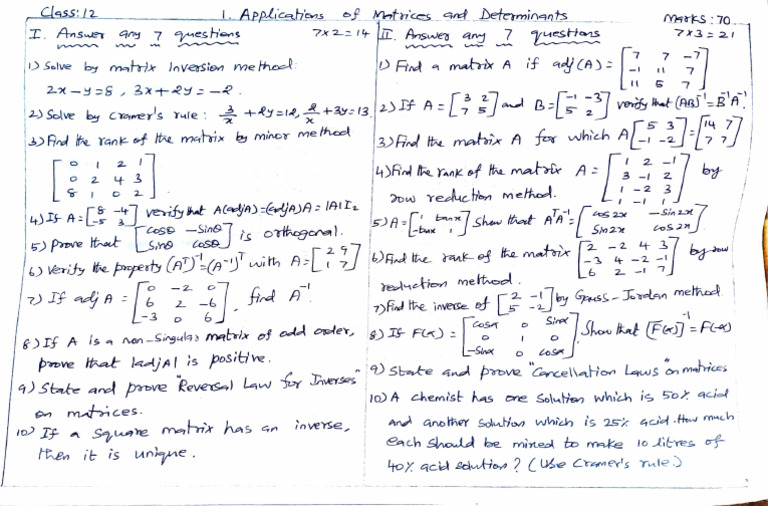 Class:12
1. Applications of Matrices and Determinants
Marks:70
I. Answer any 7 questions 7x2=14
1) Solve by matrix Inversion method:
2x-y=8, 3x+2y=-2.
2) Solve by cramer's rule: 3/x +2y=12, 2/x +3y=13.
3) Find the rank of the matrix by minor method
[0 1 2 1
0 2 4 3
8 1 0 2]
4) If A=[8 -4
-5 3] verify that A(adjA)=(adjA)A=|A|I₂
5) Prove that [cosθ -sinθ
sinθ cosθ] is orthogonal.
6) Verify the property (Aᵀ)⁻¹=(A⁻¹)ᵀ with A=[2 9
1 7]
7) If adj A=[0 -2 0
6 2 -6
-3 0 6], find A⁻¹.
8) If A is a non-Singular matrix of odd order,
prove that |adjA| is positive.
9) State and prove "Reversal Law for Inverses"
on matrices.
10) If a square matrix has an inverse,
then it is unique.
II. Answer any 7 questions 7x3=21
1) Find a matrix A if adj(A)=[7 7 -7
-1 11 7
11 5 7]
2) If A=[3 2
7 5] and B=[-1 -3
5 2] verify that (AB)⁻¹=B⁻¹A⁻¹.
3) Find the matrix A for which A[5 3
-1 -2]=[14 7
7 7]
4) Find the rank of the matrix A=[1 2 -1
3 -1 2
1 -2 3
1 -1 1] by
row reduction method.
5) A=[1 tanx
-tanx 1] Show that AᵀA⁻¹=[cos2x -sin2x
sin2x cos2x]
6) Find the rank of the matrix [2 -2 4 3
-3 4 -2 -1
6 2 -1 7] by row
reduction method.
7) Find the inverse of [2 -1
5 -2] by Gauss-Jordan method
8) If F(α)=[cosα 0 sinα
0 1 0
-sinα 0 cosα], Show that [F(α)]⁻¹=F(-α)
9) State and prove "Cancellation Laws" on matrices
10) A chemist has one solution which is 50% acid
and another solution which is 25% acid. How much
each should be mixed to make 10 litres of
40% acid solution? (Use Cramer's rule.)